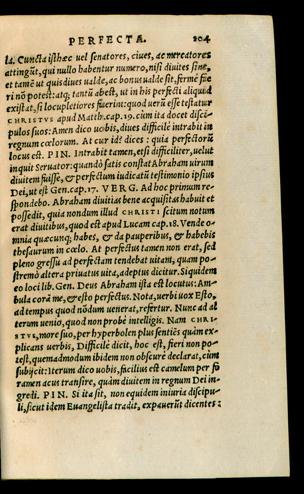 PERFECTA. 204
la. Cuncta isthæc uel senatores, ciues, ac mercatores
attingūt, qui nullo habentur numero, nisi diuites sint,
et tamē ut quis diues ualde, ac bonus ualde sit, fermè fie
ri nō potest: atq; tantū abest, ut in his perfecti aliquid
existat, si locupletiores fuerint: quod uerū esse testatur
CHRISTVS apud Matth. cap. 19. cum ita docet disci-
pulos suos: Amen dico uobis, diues difficilè intrabit in
regnum cœlorum. At cur id? dices: quia perfectorū
locus est. PIN. Intrabit tamen, etsi difficiliter, uelut
inquit Seruator: quandò satis constat Abraham uirum
diuitem fuisse, & perfectum iudicatū testimonio ipsius
Dei, ut est Gen. cap. 17. VERG. Ad hoc primum re-
spondebo. Abraham diuitias bene acquisitas habuit et
possedit, quia nondum illud CHRISTI scitum notum
erat diuitibus, quod est apud Lucam cap. 18. Vende o-
mnia quæcunq; habes, & da pauperibus, & habebis
thesaurum in cœlo. At perfectus tamen non erat, sed
pleno gressu ad perfectam tendebat uitam, quam po-
stremò altera priuatus uita, adeptus dicitur. Siquidem
eo loci lib. Gen. Deus Abraham ista est locutus: Am-
bula corā me, & esto perfectus. Nota, uerbi uox Esto,
ad tempus quod nōdum uenerat, refertur. Nunc ad al
terum uenio, quod non probè intelligis. Nam CHRI-
STVS, more suo, per hyperbolen plus sentiēs quàm ex-
plicans uerbis, Difficilè dicit, hoc est, fieri non po-
test, quemadmodum ibidem non obscurè declarat, cùm
subijcit: Iterum dico uobis, facilius est camelum per fo
ramen acus transire, quàm diuitem in regnum Dei in-
gredi. PIN. Si ita sit, non equidem iniuria discipu-
li, sicut idem Euangelista tradit, expauerūt dicentes: